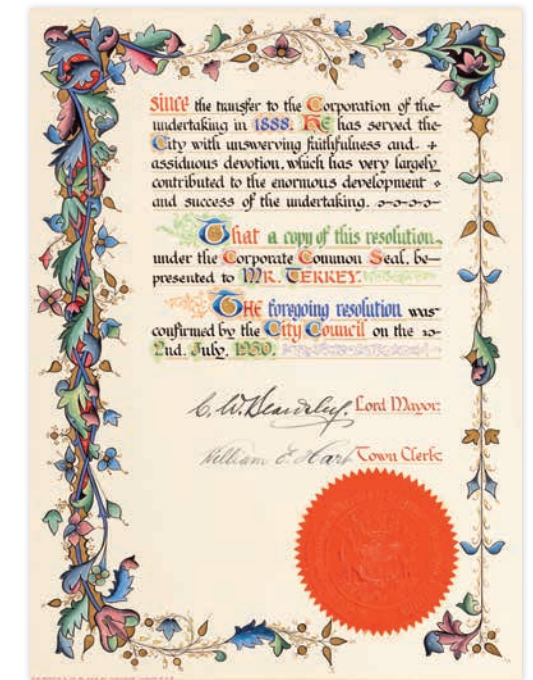 Since the transfer to the Corporation of the
undertaking in 1888. He has served the
City with unswerving faithfulness and
assiduous devotion, which has very largely
contributed to the enormous development
and success of the undertaking.
That a copy of this resolution,
under the Corporate Common Seal, be
presented to MR. TERREY.
THE foregoing resolution was
confirmed by the City Council on the
2nd. July. 1930.
C. W. Beardsley. Lord Mayor.
William E. Hart Town Clerk.